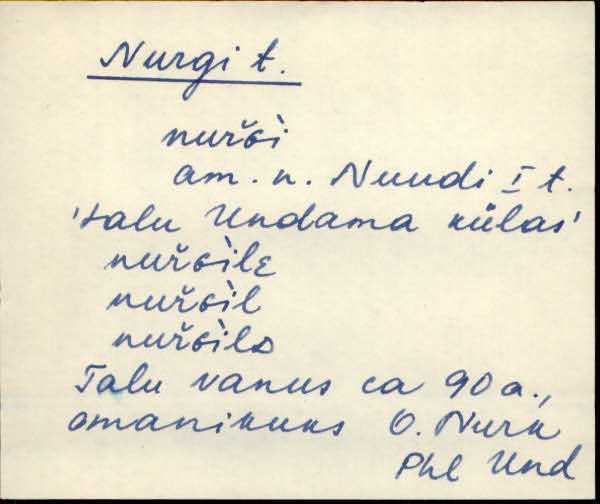 Nurgi t.
nuřɢì
am. n. Nuudi I t.
'talu Undama külas'
nuřɢìlɛ
nuřɢìl
nuřɢìlᴅ
Talu vanus ca 90 a.,
omanikuks O. Nurk
Phl Und